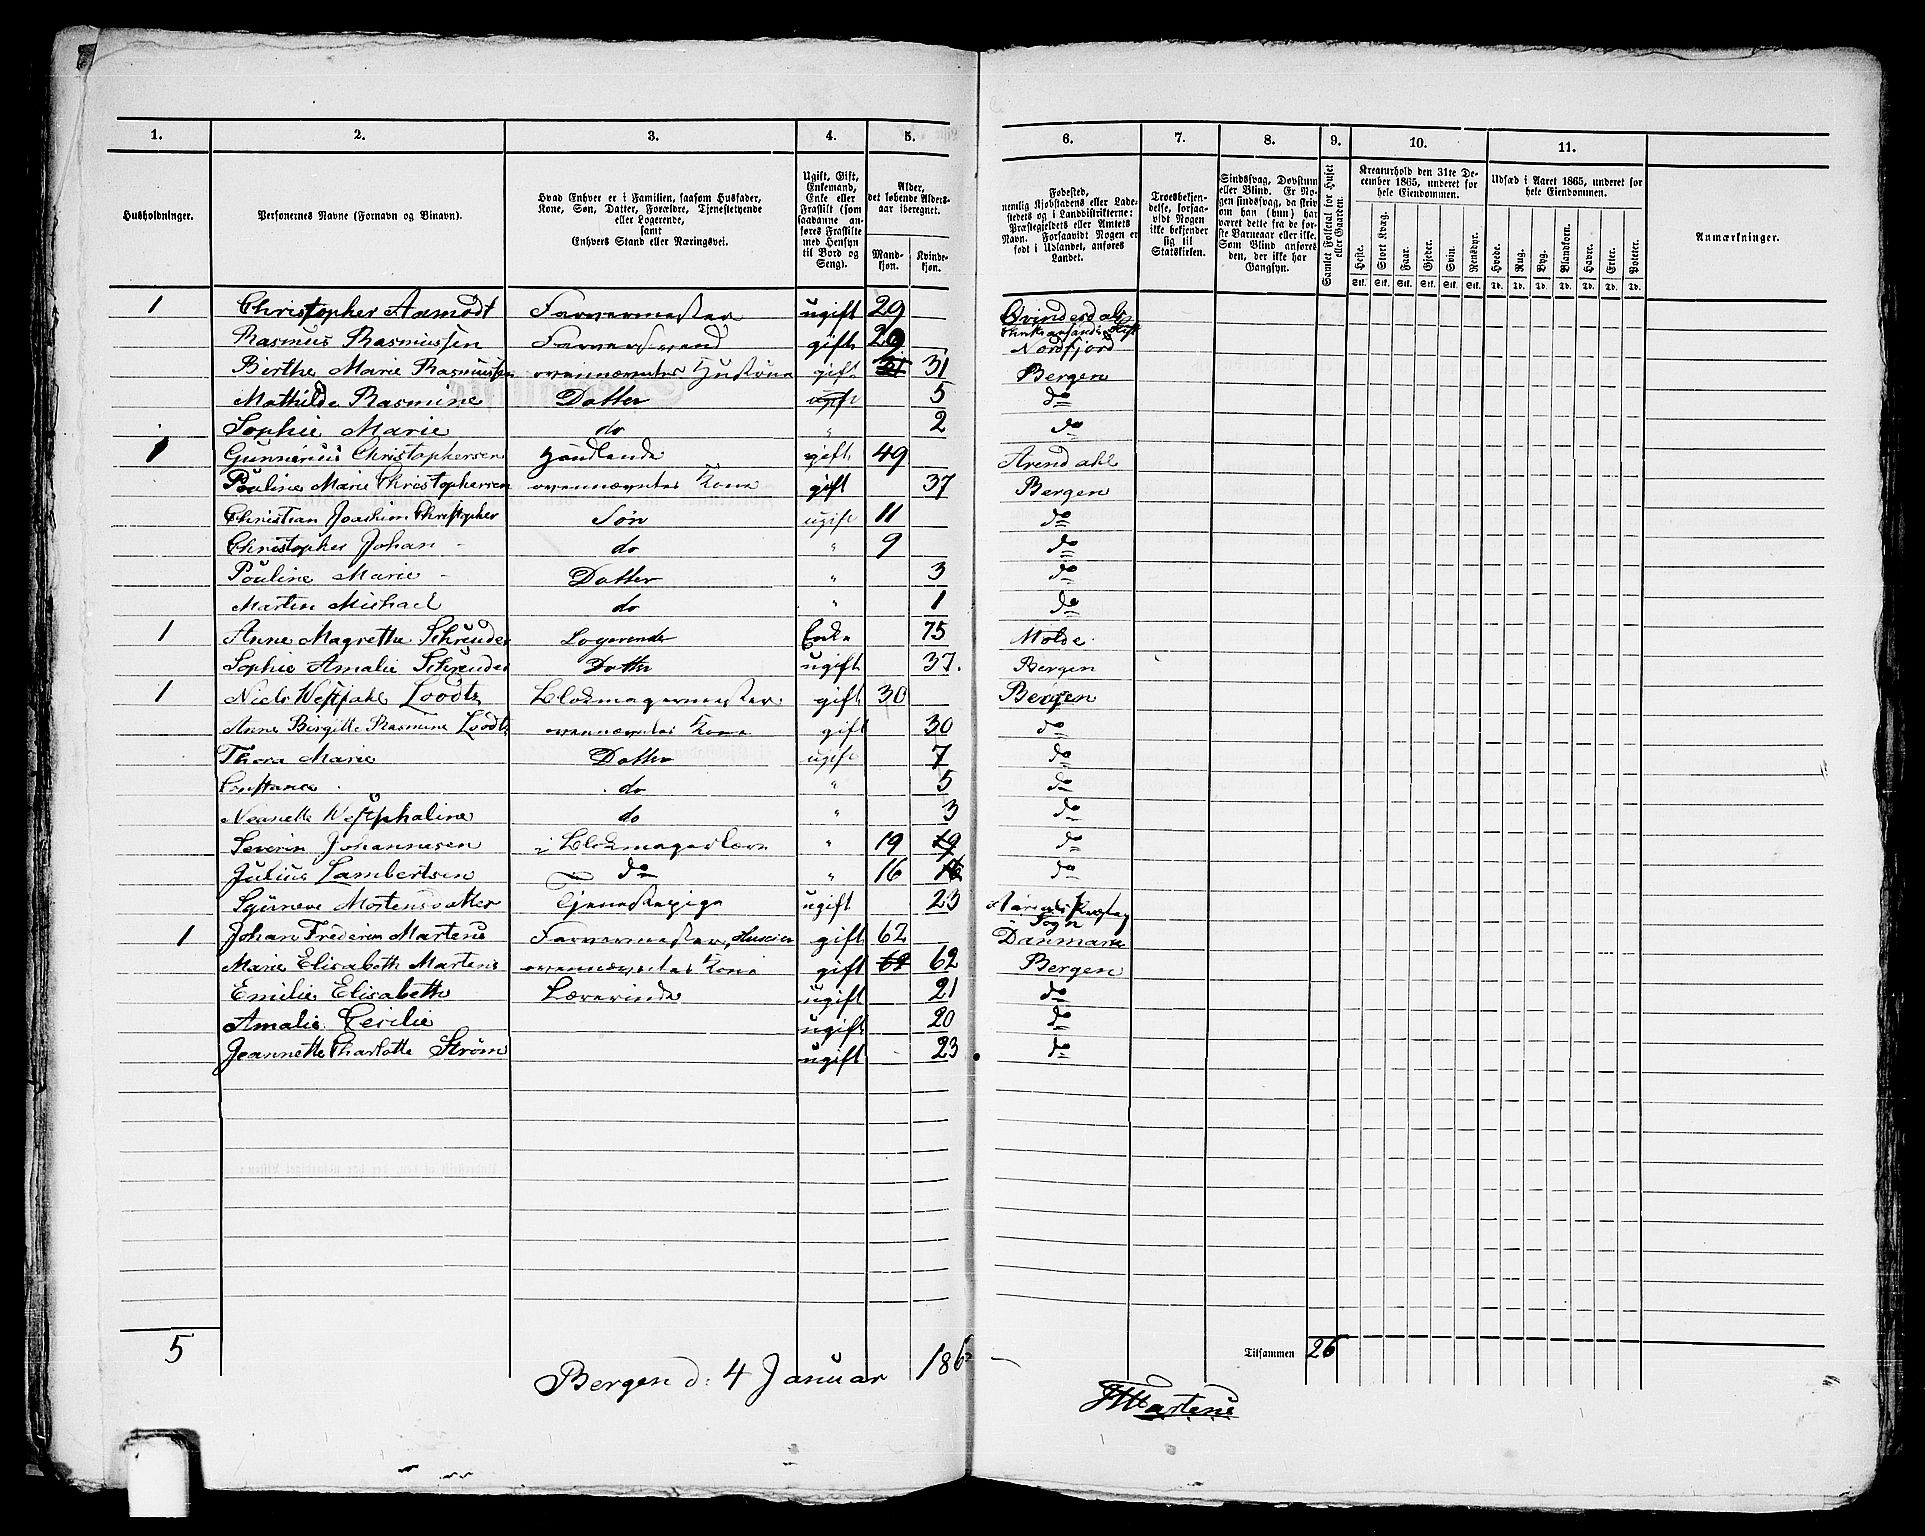 1. 2. 3. 4. 5. 6. 7. 8. 9. 10. 11.
Husholdninger.
Personernes Navne (Fornavn og Binavn).
Hvad Enhver er i Familien, saasom Husfader,
Kone, Søn, Datter, Forældre, Tjenestetyende
eller Logerende,
samt
Enhvers Stand eller Næringsvei.
Ugift, Gift,
Enkemand,
Enke eller
Fraskilt (som
saadanne an-
føres Fraskilte
med Hensyn
til Bord og
Seng).
Alder,
det løbende Alders-
aar iberegnet.
Mand-
kjøn.
Kvinde-
kjøn.
Fødested,
nemlig Kjøbstadens eller Lade-
stedets og i Landdistrikterne:
Præstegjeldets eller Amtets
Navn. Forsaavidt Nogen er
født i Udlandet, anføres
Landet.
Troesbekjen-
delse, forsaa-
vidt Nogen
ikke bekjender
sig til
Statskirken.
Sindssvag, Døvstum
eller Blind. Er No-
gen sindssvag, da skriv
om han (hun) har
været dette fra de før-
ste Barneaar eller ikke.
Som Blind anføres
den, der ikke har
Gangsyn.
Samlet Folketal for Huset
eller Gaarden.
Kreaturhold den 31te De-
cember 1865, underet for
hele Eiendommen.
Heste. Stort Kvæg. Faar. Gjeder. Svin. Rensdyr.
Stk. Stk. Stk. Stk. Stk. Stk.
Udsæd i Aaret 1865, underet for
hele Eiendommen.
Hvede. Rug. Byg. Blandkorn. Havre. Erter. Poteter.
Td. Td. Td. Td. Td. Td. Td.
Anmærkninger.
1 Christopher Aamodt Farvermester ugift 29 Qvindesdal
Christiansands Stift
Rasmus Rasmussen Farversvend gift 29 Nordfjord
Birthe Marie Rasmussen ovennævntes Hustrue gift 31 31 Bergen
Mathilde Rasmine Datter ugift 5 do
Sophie Marie do " 2 do
1 Gunnerius Christophersen Handlende gift 49 Arendahl
Pouline Marie Christophersen ovennævntes Kone gift 37 Bergen
Christian Joachim Christopher Søn ugift 11 do
Christopher Johan - do " 9 do
Pouline Marie - Datter " 3 do
Martin Michael do " 1 do
1 Anne Magrethe Schreuder Logerende Enke 75 Molde
Sophie Amalie Schreuder Datter ugift 37. Bergen
1 Niels Westfahl Loodtz Blokmagermester gift 30 Bergen
Anne Birgitte Rasmine Loodtz ovennævntes Kone gift 30 do
Thora Marie Datter ugift 7 do
Constance . do " 5 do
Neanette Westphaline do " 3 do
Severin Johannesen i Blokmagerlære " 19 19 do
Julius Lambertsen do " 16 16 do
Sgúneve Mortensdatter Tjenestepige ugift 23
Sogn
1 Johan Frederik Martens Farvermester, Huseier gift 62 Danmark
Marie Elisabeth Martens ovennævntes Kone gift 62 62 Bergen
Emilie Elisabeth Lærerinde ugift 21 do
Amalie Cecilie ugift 20 do
Jeannette Charlotte Strøm ugift 23 do
5 Tilsammen 26
Bergen d: 4 Januar 186
Martens